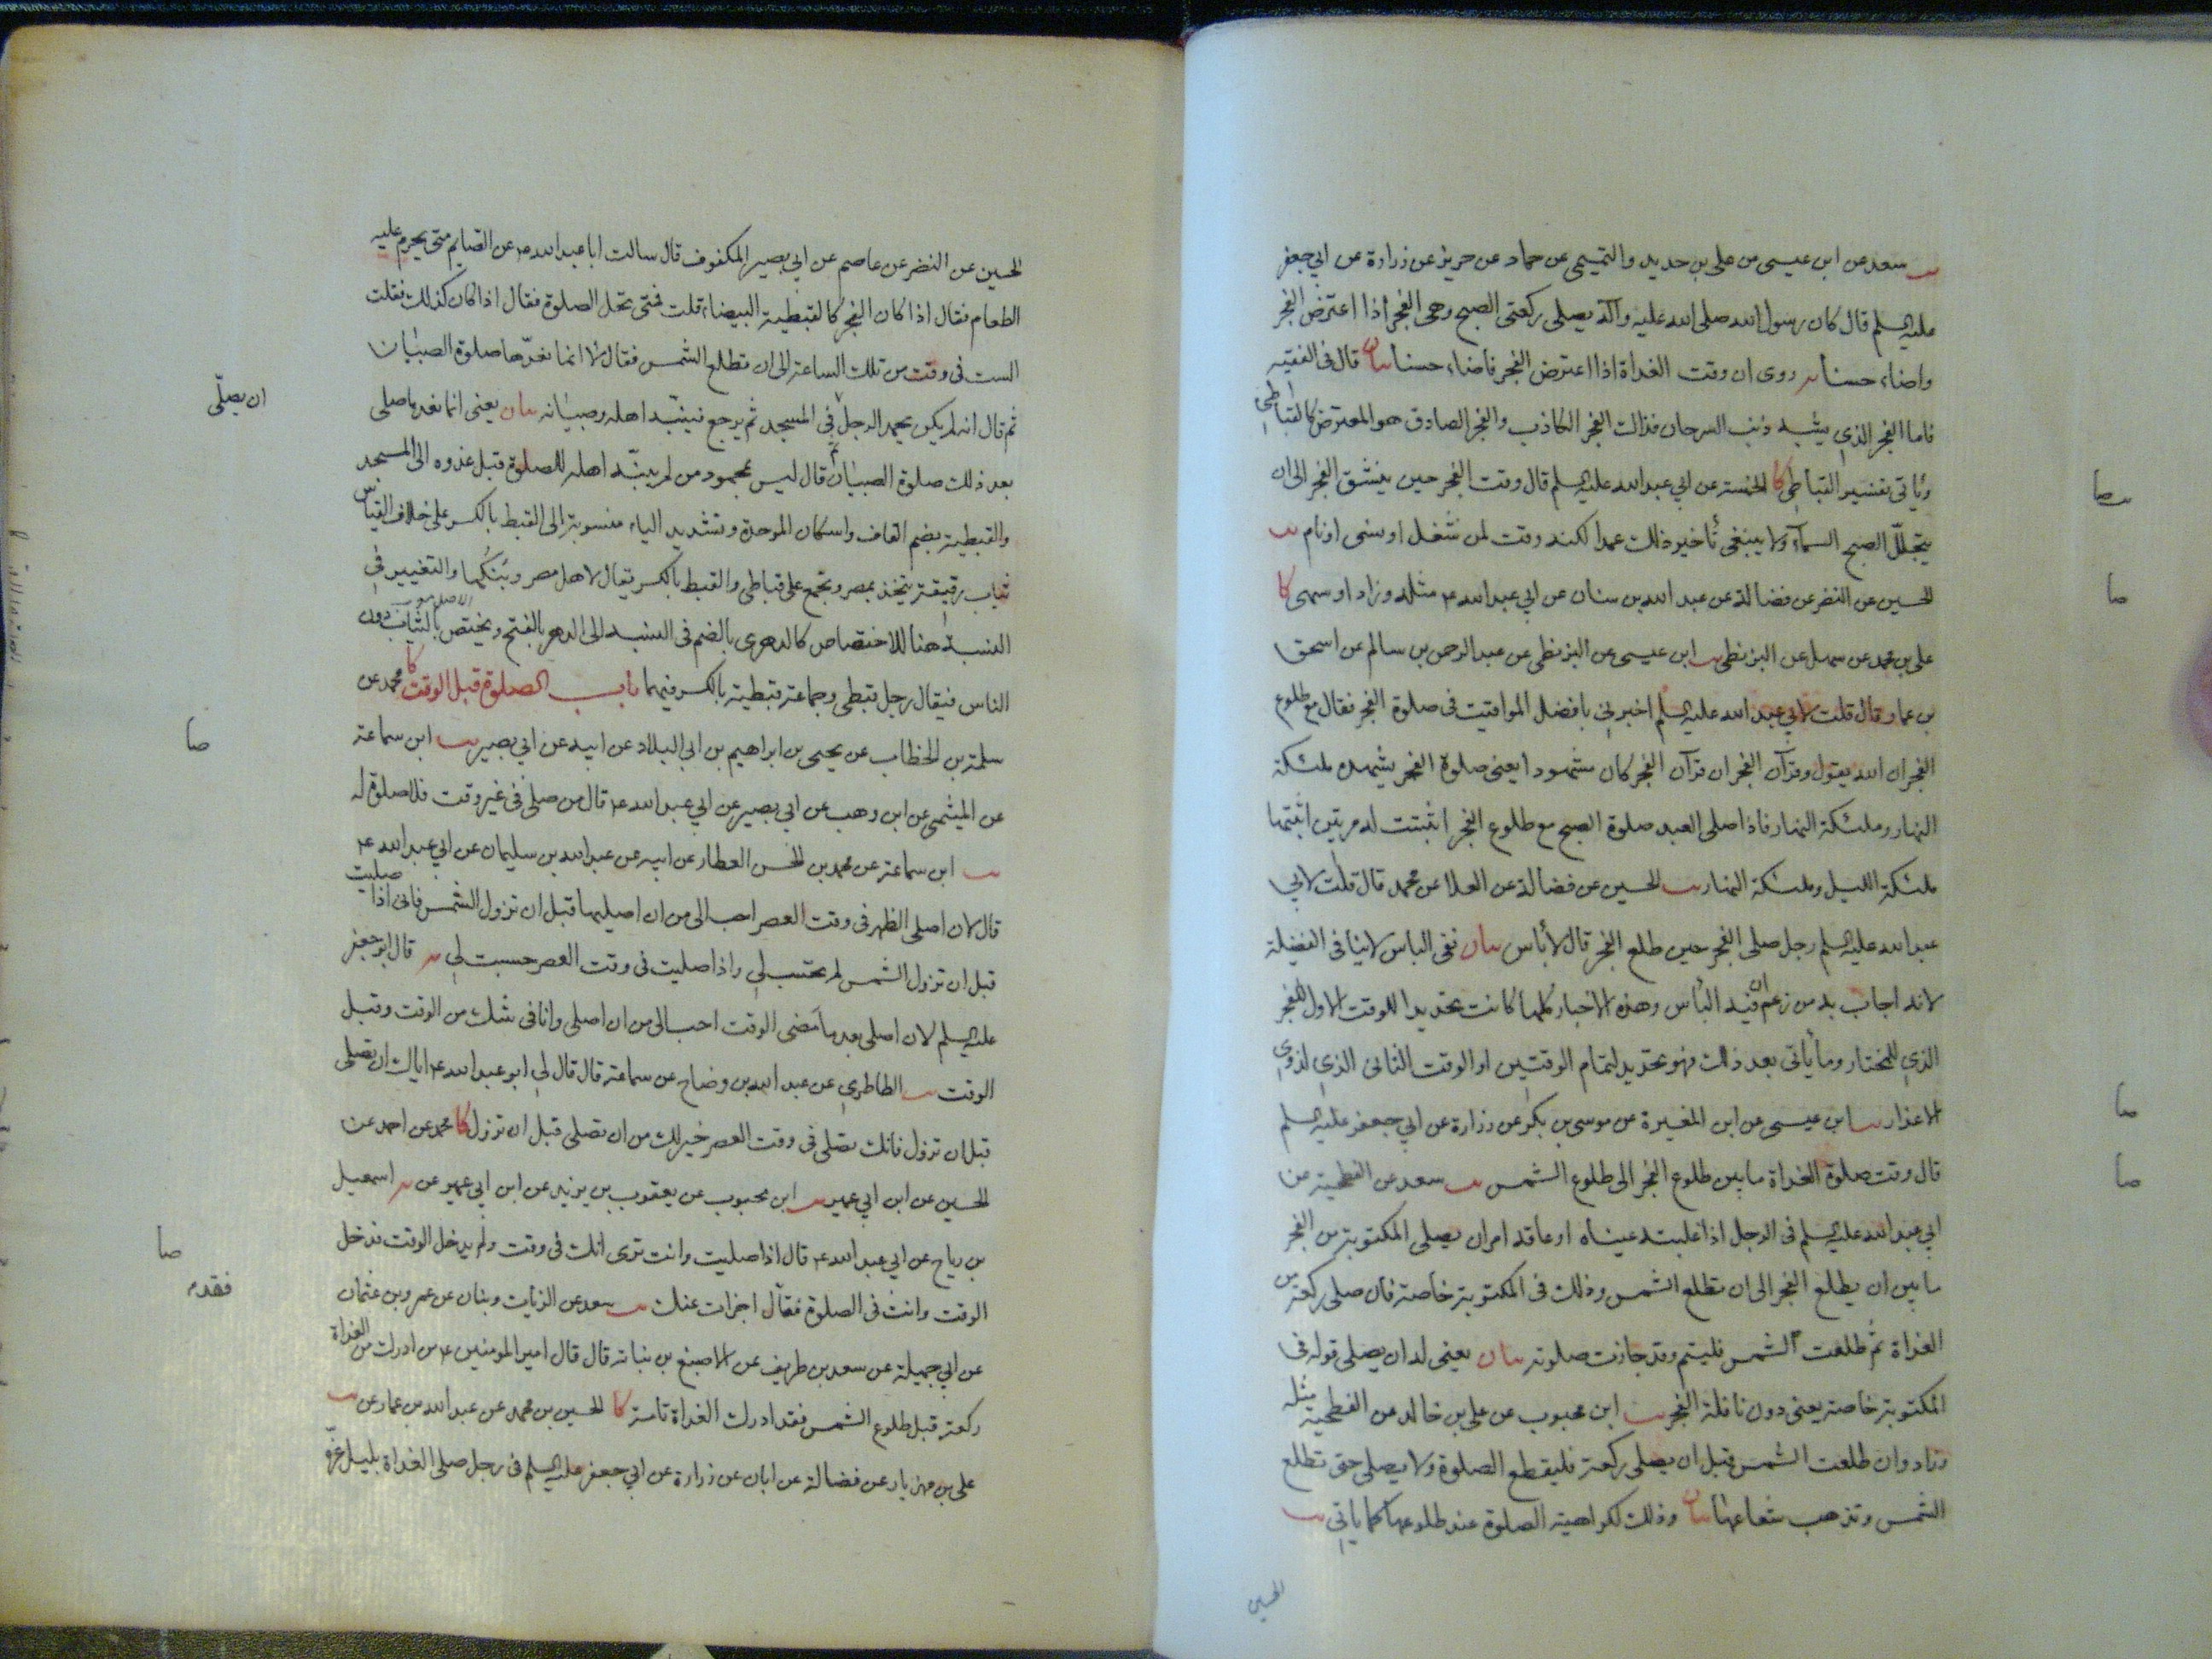 يب سعد عن ابن عيسى عن على بن حديد والتميمى عن حماد عن حريز عن زرارة عن ابى جعفر
عليه السلم قال كان رسول الله صلى الله عليه وآله يصلى ركعتى الصبح وهى الفجر اذا اعترض الفجر
واضاء حسنا يه روى ان وقت الغداة اذا اعترض الفجر فاضاء حسنا بيان قال فى الفقيه
فاما الفجر الذى يشبه ذنب السرحان فذلك الفجر الكاذب والفجر الصادق هو المعترض كالقباطى
وياتى تفسير القباطى كا الخمسة عن ابى عبد الله عليه السلم قال وقت الفجر حين ينشق الفجر الى ان
يتجلل الصبح السماء ولا ينبغى تأخير ذلك عمدا لكنه وقت لمن شغل او نسى او نام يب
الحسين عن النضر عن فضالة عن عبد الله بن سنان عن ابى عبد الله ع مثله وزاد او سهى كا
على بن محمد عن سهل عن البزنطى يب ابن عيسى عن البزنطى عن عبد الرحمن بن سالم عن اسحق
بن عمار قال قلت لابى عبد الله عليه السلم اخبرنى بافضل المواقيت فى صلوة الفجر فقال مع طلوع
الفجر ان الله يقول وقرآن الفجر ان قرآن الفجر كان مشهودا يعنى صلوة الفجر يشهده ملئكة
النهار وملئكة النهار فاذا صلى العبد صلوة الصبح مع طلوع الفجر اثبتت له مرتين اثبتها
ملئكة الليل وملئكة النهار يب الحسين عن فضالة عن العلا عن محمد قال قلت لابى
عبد الله عليه السلم رجل صلى الفجر حين طلع الفجر قال لا بأس بيان نفى الباس لا ينافى الفضيلة
لانه اجاب به من زعم ان فيه البأس وهذه الاخبار كلها كانت تحديدا للوقت الاول للفجر
الذى للمختار وما يأتى بعد ذلك فهو تحديد لتمام الوقتين او الوقت الثانى الذى لذوى
الاعذار يب ابن عيسى عن ابن المغيرة عن موسى بن بكر عن زرارة عن ابى جعفر عليه السلم
قال وقت صلوة الغداة ما بين طلوع الفجر الى طلوع الشمس يب سعد عن الفطحية عن
ابى عبد الله عليه السلم فى الرجل اذا غلبته عيناه او عاقه امر ان يصلى المكتوبة من الفجر
ما بين ان يطلع الفجر الى ان تطلع الشمس وذلك فى المكتوبة خاصة فان صلى ركعة من
الغداة ثم طلعت الشمس فليتم وقد جازت صلوته بيان يعنى له ان يصلى قوله فى
المكتوبة خاصة يعنى دون نافلة الفجر يب ابن محبوب عن على بن خالد عن الفطحية مثله
وزاد وان طلعت الشمس قبل ان يصلى ركعة فليقطع الصلوة ولا يصلى حتى تطلع
الشمس وتذهب شعاعها بيان وذلك لكراهية الصلوة عند طلوعها كما ياتى يب
الحسين
صا
صا
صا
صا
الحسين عن النضر عن عاصم عن ابى بصير المكفوف قال سالت ابا عبد الله ع عن الصايم متى يحرم عليه
الطعام فقال اذا كان الفجر كالقبطية البيضاء قلت فمتى تحل الصلوة فقال اذا كان كذلك فقلت
الست فى وقت من تلك الساعة الى ان تطلع الشمس فقال لا انما نعدها صلوة الصبيان
ثم قال انه لم يكن يحمد الرجل فى المسجد ثم يرجع فينبه اهله وصبيانه بيان يعنى انما نعدها صلى
ان يصلى
بعد ذلك صلوة الصبيان ثم قال ليس بمحمود من لم ينبه اهله للصلوة قبل غدوه الى المسجد
والقبطية بضم القاف واسكان الموحدة وتشديد الياء منسوبة الى القبط بالكسر على خلاف القياس
ثياب رقيقة تتخذ بمصر وتجمع على قباطى والقبط بالكسر يقال لاهل مصر وبنكها والتغيير فى
النسبة هنا للاختصاص كالدهرى بالضم فى النسبة الى الدهر بالفتح ويختص بالثياب دون
الناس فيقال رجل قبطى وجماعة قبطية بالكسر فيهما باب الصلوة قبل الوقت كا محمد عن
سلمة بن الخطاب عن يحيى بن ابراهيم بن ابى البلاد عن ابيه عن ابى بصير يب ابن سماعة
صا
عن الميثمى عن ابن وهب عن ابى بصير عن ابى عبد الله ع قال من صلى فى غير وقت فلا صلوة له
يب ابن سماعة عن محمد بن الحسن العطار عن ابيه عن عبد الله بن سليمان عن ابى عبد الله ع
قال لان اصلى الظهر فى وقت العصر احب الى من ان اصليها قبل ان تزول الشمس فانى اذا صليت
قبل ان تزول الشمس لم تحتسب لى واذا صليت فى وقت العصر حسبت لى يه قال ابو جعفر
عليه السلم لان اصلى بعد ما مضى الوقت احب الى من ان اصلى وانا فى شك من الوقت وقبل
الوقت يب الطاطرى عن عبد الله بن وضاح عن سماعة قال قال لى ابو عبد الله ع اياك ان تصلى
قبل ان تزول فانك تصلى فى وقت العصر خير لك من ان تصلى قبل ان تزول كا محمد عن احمد عن
الحسين عن ابن ابى عمير يب ابن محبوب عن يعقوب بن يزيد عن ابن ابى عمير عن يه اسمعيل
بن رياح عن ابى عبد الله ع قال اذا صليت وانت ترى انك فى وقت ولم يدخل الوقت فدخل
الوقت وانت فى الصلوة فقال اجزات عنك يب سعد عن الزيات وبنان عن عمرو بن عثمان
صا
فقدم
عن ابى جميلة عن سعد بن طريف عن الاصبغ بن نباتة قال قال امير المومنين ع من ادرك من الغداة
ركعة قبل طلوع الشمس فقد ادرك الغداة تامة كا الحسين بن محمد عن عبد الله بن عامر عن يب
على بن مهزيار عن فضالة عن ابان عن زرارة عن ابى جعفر عليه السلم فى رجل صلى الغداة بليل غره